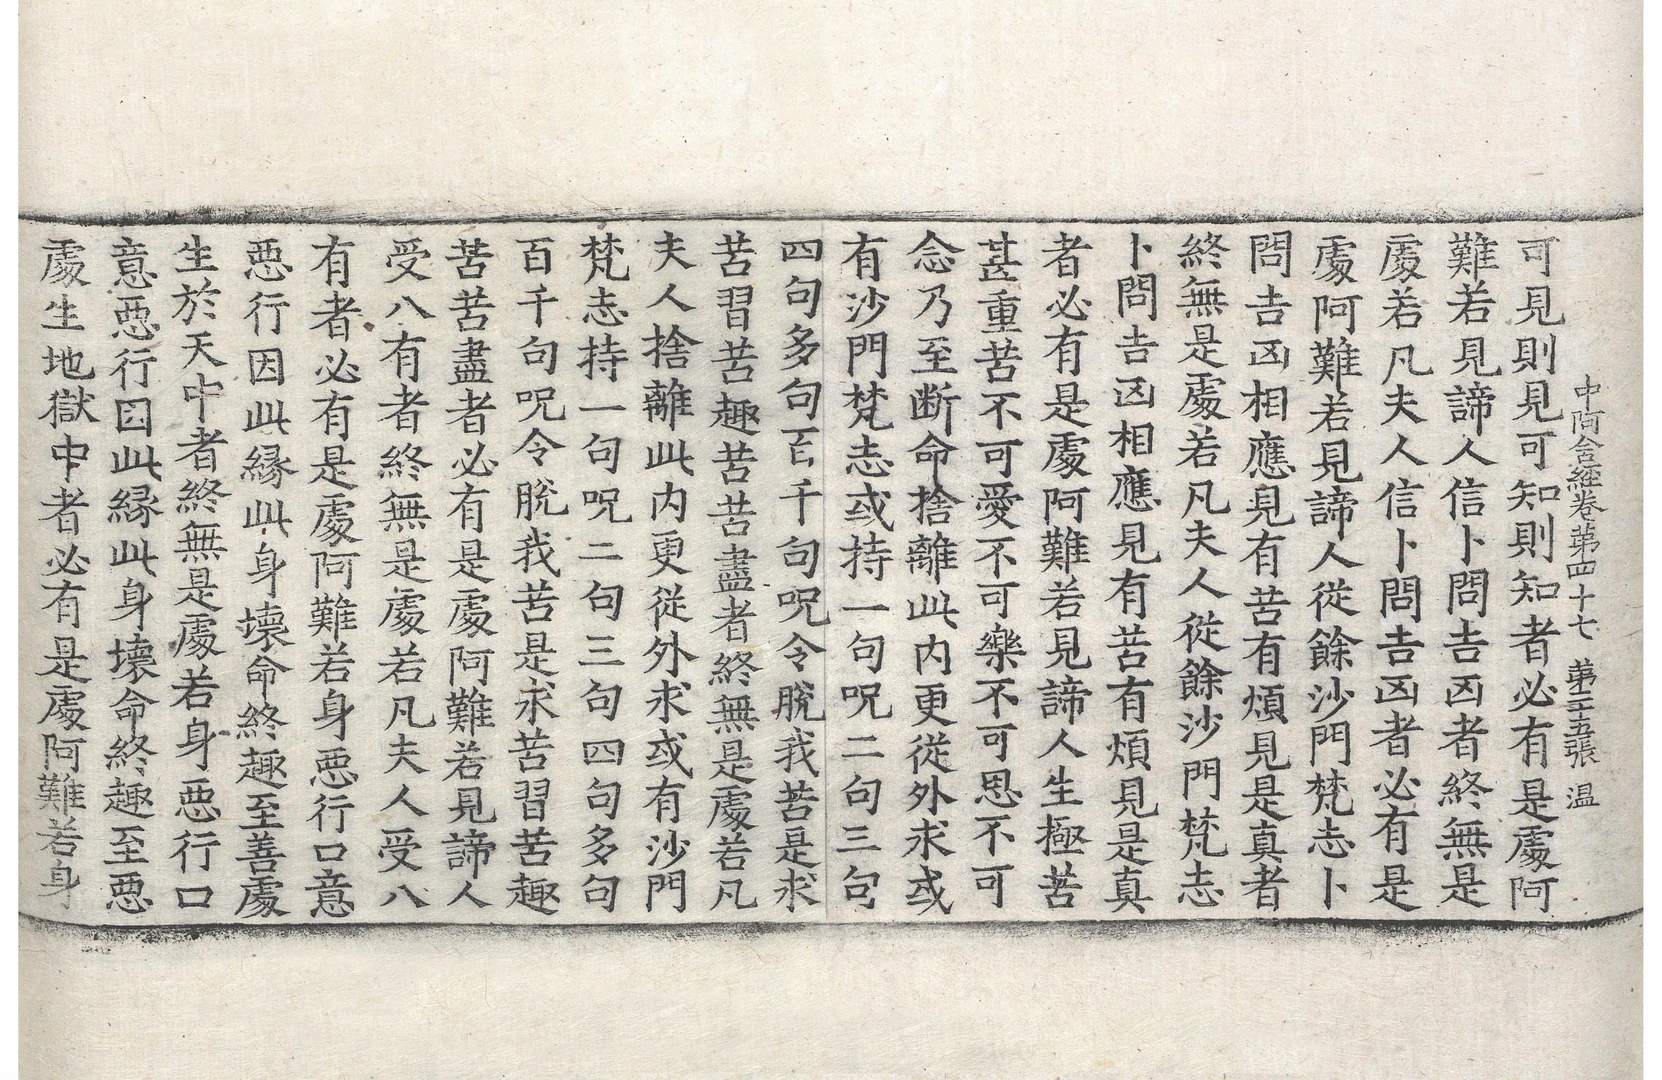 中阿含經卷第四十七 第二十五張 温
可見則見可知則知者必有是處阿
難若見諦人信卜問吉凶者終無是
處若凡夫人信卜問吉凶者必有是
處阿難若見諦人從餘沙門梵志卜
問吉凶相應見有苦有煩見是真者
終無是處若凡夫人從餘沙門梵志
卜問吉凶相應見有苦有煩見是真
者必有是處阿難若見諦人生極苦
甚重苦不可愛不可樂不可思不可
念乃至断命捨離此内更從外求或
有沙門梵志或持一句呪二句三句
四句多句百千句呪令脫我苦是求
苦習苦趣苦苦盡者終無是處若凡
夫人捨離此内更從外求或有沙門
梵志持一句呪二句三句四句多句
百千句呪令脫我苦是求苦習苦趣
苦苦盡者必有是處阿難若見諦人
受八有者終無是處若凡夫人受八
有者必有是處阿難若身惡行口意
惡行因此縁此身壞命終趣至善處
生於天中者終無是處若身惡行口
意惡行因此縁此身壞命終趣至惡
處生地獄中者必有是處阿難若身